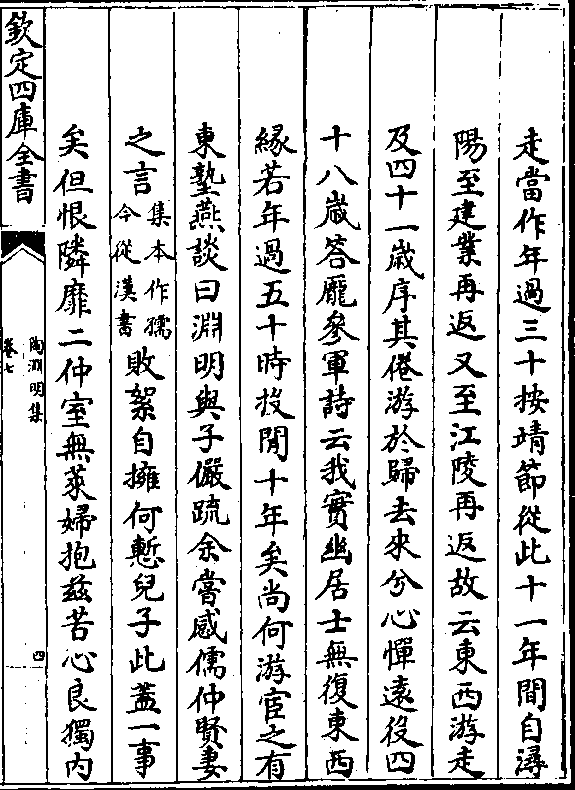 走當作年過三十按靖節從此十一年間自潯
陽至建業再返又至江陵再返故云東西游走
及四十一歲序其倦游於歸去來兮心憚遠役四
十八歲答龐參軍詩云我實幽居士無復東西
緣若年過五十時投閒十年矣尚何游宦之有
東塾燕談曰淵明與子儼疏余嘗感儒仲賢妻
之言集本作孺今從漢書敗絮自擁何慙兒子此蓋一事
矣但恨隣靡二仲室無萊婦抱兹苦心良獨内
欽定四庫全書
陶淵明集
卷七
四